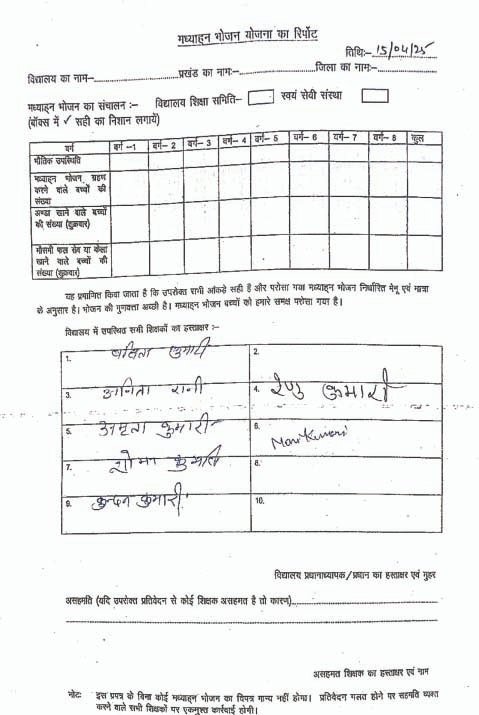 मध्याहन भोजन योजना का रिर्पोट
तिथिः– 15/04/25
विद्यालय का नाम–.................प्रखंड का नामः–.................जिला का नामः–.............
मध्याहन भोजन का संचालन :– विद्यालय शिक्षा समिति– स्वयं सेवी संस्था
(बॉक्स में ✓ सही का निशान लगायें)
वर्ग वर्ग –1 वर्ग– 2 वर्ग– 3 वर्ग– 4 वर्ग– 5 वर्ग– 6 वर्ग– 7 वर्ग– 8 कुल
भौतिक उपस्थिति
मध्याहन भोजन ग्रहण
करने वाले बच्चों की
संख्या
अण्डा खाने वाले बच्चों
की संख्या (शुक्रवार)
मौसमी फल सेव या केला
खाने वाले बच्चों की
संख्या (शुक्रवार)
यह प्रमाणित किया जाता है कि उपरोक्त सभी आँकड़े सही है और परोसा गया मध्याहन भोजन निर्धारित मेनू एवं मात्रा
के अनुसार है। भोजन की गुणवत्ता अच्छी है। मध्याहन भोजन बच्चों को हमारे समक्ष परोसा गया है।
विद्यालय में उपस्थित सभी शिक्षकों का हस्ताक्षर :–
1. कुमारी 2.
3. अनिता रानी 4. रेणु कुमारी
5. अमृता कुमारी 6. Kumari
7. कुमारी 8.
9. कुन्दन कुमारी 10.
विद्यालय प्रधानाध्यापक/प्रधान का हस्ताक्षर एवं मुहर
असहमति (यदि उपरोक्त प्रतिवेदन से कोई शिक्षक असहमत है तो कारण)..........................
असहमत शिक्षक का हस्ताक्षर एवं नाम
नोटः इस प्रपत्र के बिना कोई मध्याहन भोजन का विपत्र मान्य नहीं होगा। प्रतिवेदन गलत होने पर सहमति व्यक्त
करने वाले सभी शिक्षकों पर एकमुश्त कार्रवाई होगी।